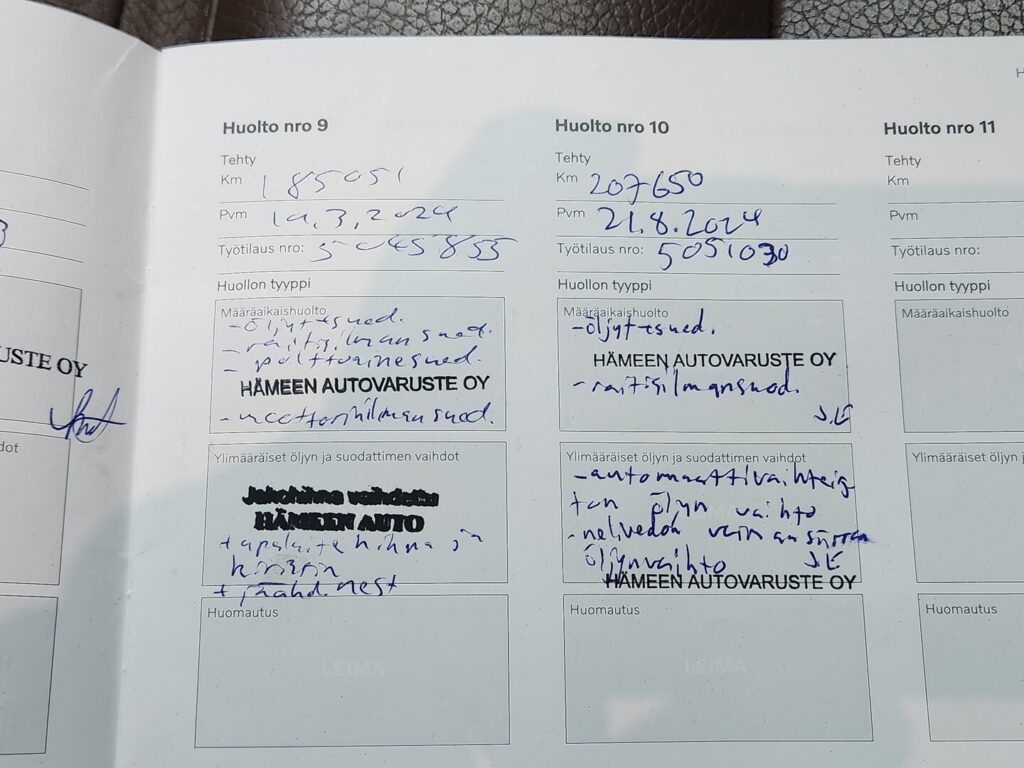 USTE OY
dot
H
Huolto nro 9
Tehty
Km 185051
Pvm 19.3.2024
Työtilaus nro: 5045855
Huollon tyyppi
Määräaikaishuolto
-öljyt+sued.
-raitisilman sued.
- polttoainesued.
HÄMEEN AUTOVARUSTE OY
-moottorinilman sued.
Ylimääräiset öljyn ja suodattimen vaihdot
Jakohihna vaihdettu
HÄMEEN AUTO
+apulaitehihna ja
kiristin
+ jäähd.nest
Huomautus
LEIMA
Huolto nro 10
Tehty
Km 207650
Pvm 21.8.2024
Työtilaus nro: 5051030
Huollon tyyppi
Määräaikaishuolto
-öljyt+sued.
HÄMEEN AUTOVARUSTE OY
-raitisilmansuod.
J.E
Ylimääräiset öljyn ja suodattimen vaihdot
-automaattivaihteis
ton öljyn vaihto
-nelivedon voimansiirron
öljynvaihto J.E
HÄMEEN AUTOVARUSTE OY
Huomautus
LEIMA
Huolto nro 11
Tehty
Km
Pvm
Työtilaus nro:
Huollon tyyppi
Määräaikaishuolto
Ylimääräiset öl
Huomautus